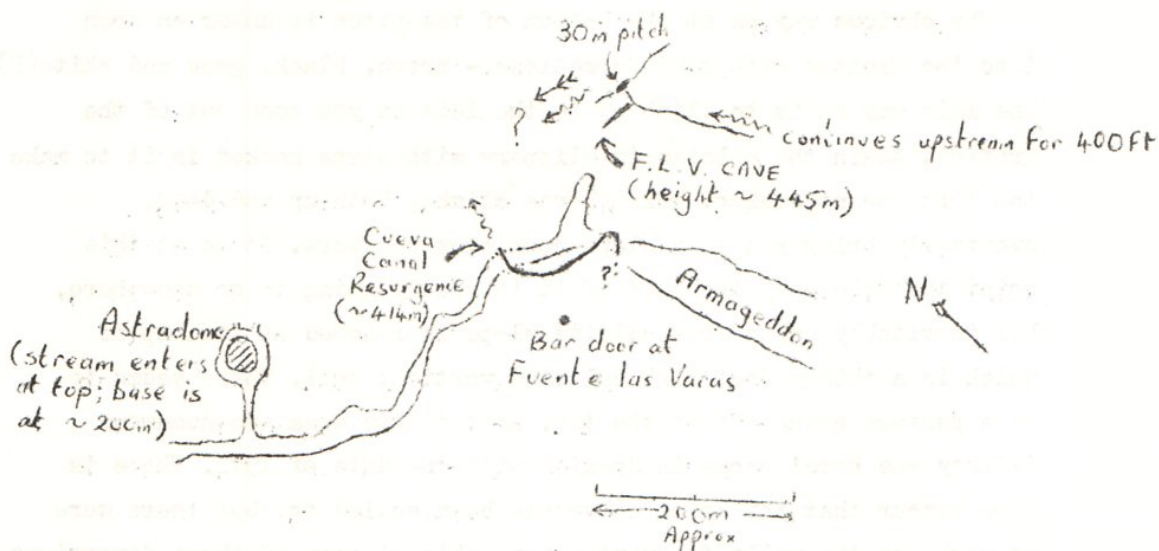 30m pitch
?
Continues upstream for 400ft
F.L.V. CAVE
(height ~ 445m)
Cueva
Canal
Resurgence
(~414m)
?
Armageddon
N
Astradome
(stream enters
at top; base is
at ~ 200m)
Bar door at
Fuente las Varas
200m
Approx